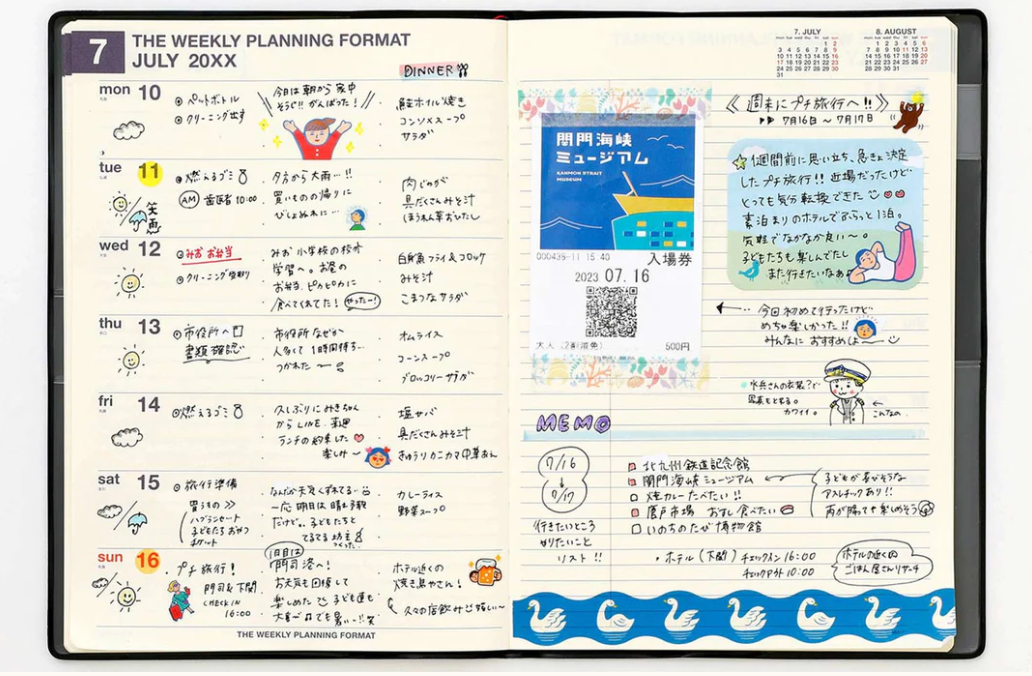 7
THE WEEKLY PLANNING FORMAT
JULY 20XX
DINNER
mon 10
ペットボトル
クリーニング出す
今日は朝から家中
そうじ!! がんばった!
鮭ホイル焼き
コンソメスープ
サラダ
tue 11
燃えるゴミ
AM 歯医者 10:00
夕方から大雨…!!
買いもの帰りに
びしょぬれに…
肉じゃが
具だくさんみそ汁
ほうれん草おひたし
wed 12
みお お弁当
クリーニング受取り
みお 小学校の校外
学習へ。お昼の
お弁当、ピカピカに
食べてくれてた! やったー!
白身魚フライ&コロッケ
みそ汁
こまつなサラダ
thu 13
市役所へ
書類確認
市役所なぜか
人多くて1時間待ち…
つかれた〜
オムライス
コーンスープ
ブロッコリーサラダ
fri 14
燃えるゴミ
久しぶりにみきちゃん
からLINE。来週
ランチの約束した
楽しみ〜
塩サバ
具だくさんみそ汁
きゅうりカニカマ中華あん
sat 15
旅行準備
買うもの >>
ハブラシセット
子どもたち おやつ
チケット
一応 明日は晴れ予報
だけど。子どもたちと
てるてる坊主
つくった。
カレーライス
野菜スープ
sun 16
プチ旅行!
門司&下関
CHECK IN
16:00
1日目は
門司港へ!
お天気も回復して
楽しめた 子ども達も
ホテル近くの
焼き鳥やさん!
久々の店飲み 嬉しい〜
THE WEEKLY PLANNING FORMAT
7. JULY
mon tue wed thu fri sat sun
1 2
3 4 5 6 7 8 9
10 11 12 13 14 15 16
17 18 19 20 21 22 23
24 25 26 27 28 29 30
31
8. AUGUST
mon tue wed thu fri sat sun
1 2 3 4 5 6
7 8 9 10 11 12 13
14 15 16 17 18 19 20
21 22 23 24 25 26 27
28 29 30 31
《週末にプチ旅行へ!!》
7月16日 〜 7月17日
関門海峡
ミュージアム
KANMON STRAIT
MUSEUM
000439-11 15 40
入場券
2023 07.16
大人
500円
1週間前に思い立ち、急きょ決定
したプチ旅行!! 近場だったけど
とっても気分転換できた
素泊まりのホテルでふらっと1泊。
気軽でなかなか良い〜。
子どもたちも楽しんでたし
また行きたいなぁ
今回初めて行ったけど
めちゃ楽しかった!!
みんなに おすすめしよ〜
水兵さんの衣装?で
写真もとれる。
カワイイ。
こんなの
MEMO
7/16
↓
7/17
行きたいところ
やりたいこと
リスト!!
北九州鉄道記念館
関門海峡ミュージアム
焼カレーたべたい!!
唐戸市場 おすし食べたい
いのちのたび博物館
子どもが喜びそうな
アスレチックあり!!
雨が降っても楽しめそう
・ホテル(下関)チェックイン 16:00
チェックアウト 10:00
ホテルの近くの
ごはん屋さんリサーチ